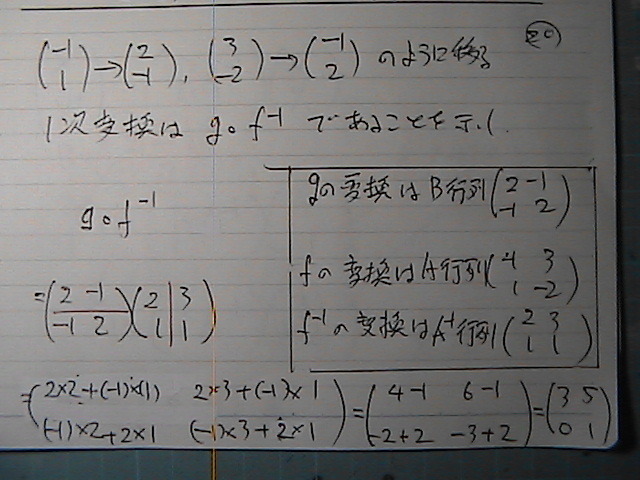 (-1 1)→(2 -1), (3 -2)→(-1 2) のように移る
1次変換は g∘f⁻¹ であることを示し(
g∘f⁻¹
gの変換はB行列(2 -1 -1 2)
fの変換はA行列(-1 3 1 -2)
f⁻¹の変換はA⁻¹行列(2 3 1 1)
=(2 -1 -1 2)(2 3 1 1)
=(2×2+(-1)×(1) 2×3+(-1)×1 (-1)×2+2×1 (-1)×3+2×1)=(4-1 6-1 -2+2 -3+2)=(3 5 0 1)